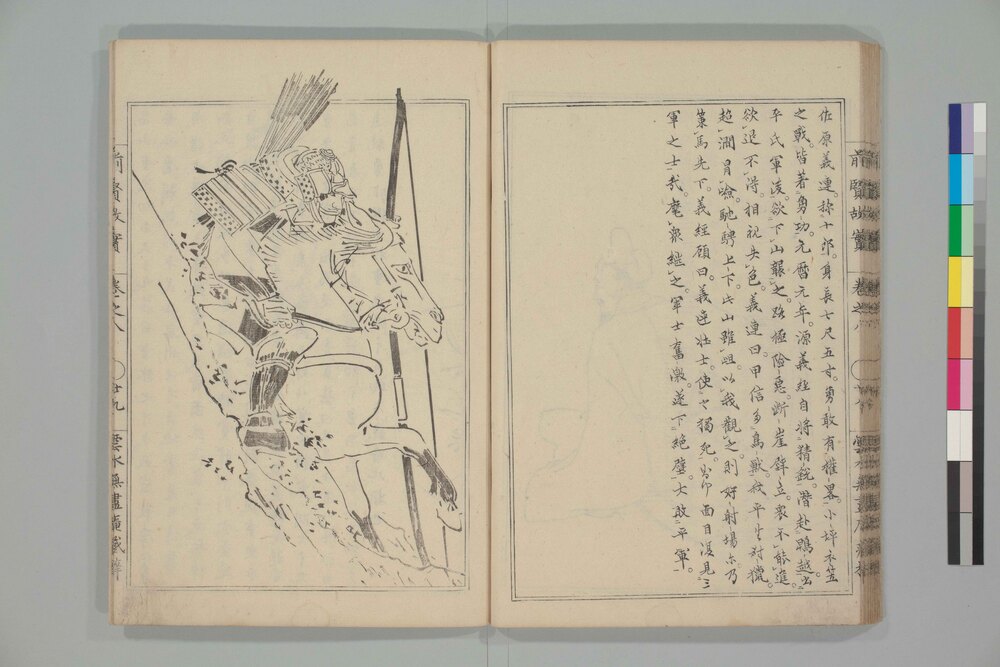 佐原義連。称十郎。身長七尺五寸。勇敢有権略。小坪衣笠
之戰。皆著勇功。元曆元年。源義経自将精銳。潜赴鵯越。出
平氏軍後。欲下山襲之。路極險惡。断崖壁立。衆不能進。
欲退不得。相視失色。義連曰。甲信多鳥獣。我平生対獵。
超澗冒險。馳騁上下。此山雖峻。以我觀之。則好射場尓。乃
策馬先下。義経顧曰。義連壮士。使之獨死。
軍之士哉。麾衆継之。軍士奮激。遂下絶壁。大敗平軍。
前賢故實
卷之八
前賢故實
卷之八
廿九
雲水無盡庵藏梓